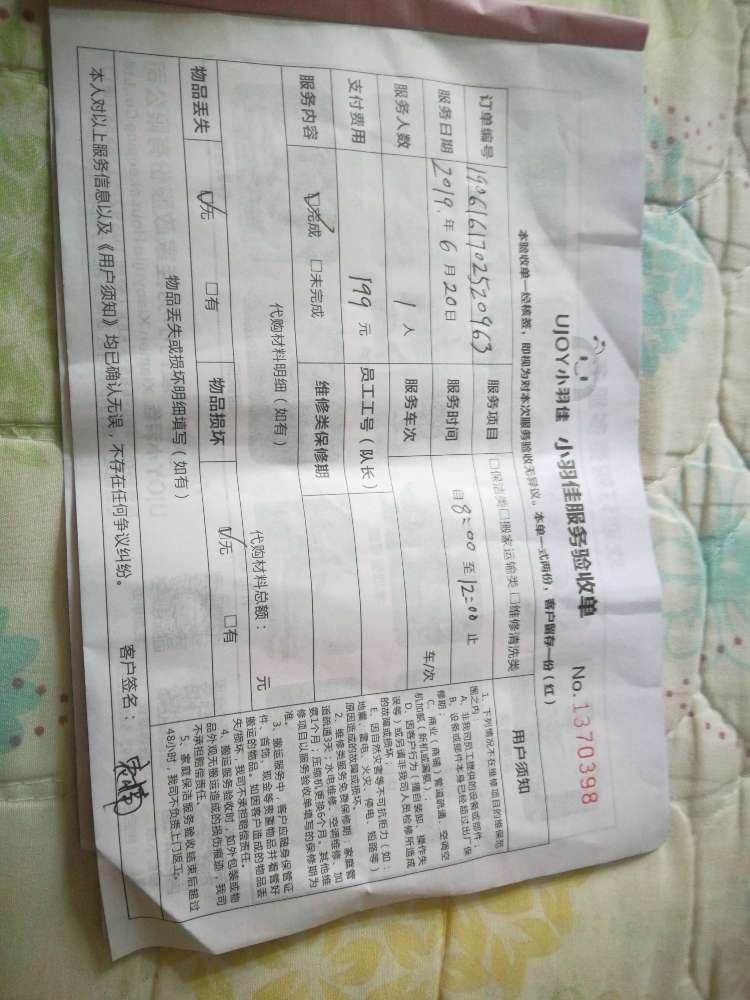 UJOY小羽佳 小羽佳服务验收单 No.1370398
本验收单一经核签，即视为对本次服务验收无异议。本单一式两份，客户留存一份（红）
订单编号 1906161702520963 服务项目 □保洁类□搬家运输类□维修清洗类
服务日期 2019.年6月20日 服务时间 自8:00至12:00止
服务人数 1人 服务车次 车/次
支付费用 199元 员工工号（队长）
服务内容 ☑完成 □未完成 维修类保修期
代购材料明细（如有） 代购材料总额： 元
物品丢失 ☑无 □有 物品损坏 ☑无 □有
物品丢失或损坏明细填写（如有）
本人对以上服务信息以及《用户须知》均已确认无误，不存在任何争议纠纷。 客户签名：
用户须知
1、下列情况不在维修项目的维保范
围之内：
A、非我司员工提供的设备或部件
B、设备或部件本身已经超过出厂保
修期
C、商业（商铺）管道疏通，空调空
机加氟（新机或漏氟）；
D、因客户行为（擅自装卸、操作失
误等）或另请非我司人员检修所造成
的故障或损坏；
E、因自然灾害等不可抗拒力（如：
地震、雷电、火灾、停电、短路等）
原因造成的故障或损坏。
2、维修类服务免费保修期：家庭管
道疏通3天；水电维修、空调维修、加
氨1个月；压缩机更换6个月。其他维
修项目以服务验收单填写的保修期为
准。
3、搬运服务中，客户应随身保管证
件、首饰、现金等贵重物品并看管好
搬运的物品。如因客户造成的物品丢
失/损坏，我司不承担赔偿责任。
4、搬运服务验收时，如外包装或物
品外观无搬运造成的损伤痕迹，我司
不承担赔偿责任。
5、家庭保洁服务验收结束后超过
48小时，我司不负责上门返工。